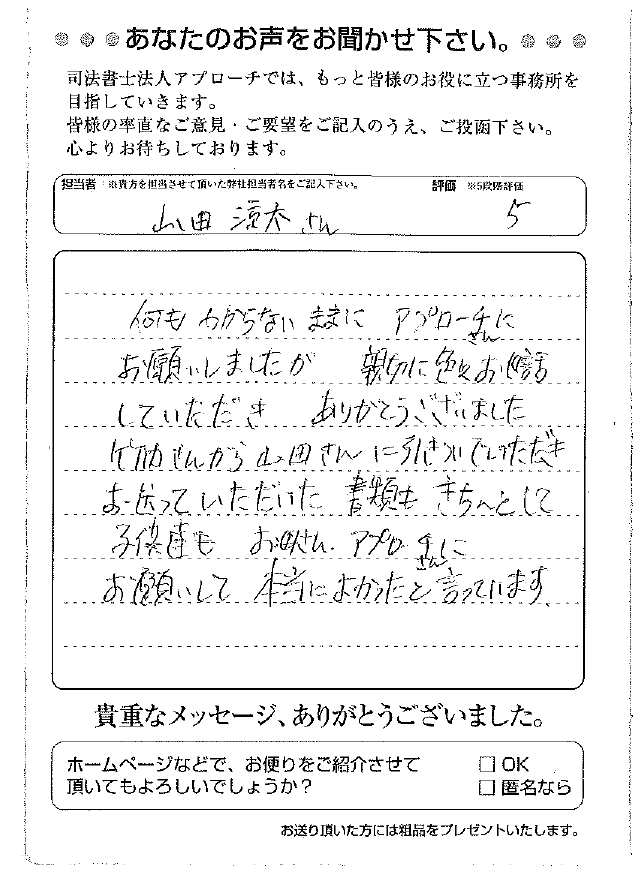 あなたのお声をお聞かせ下さい。
司法書士法人アプローチでは、もっと皆様のお役に立つ事務所を
目指していきます。
皆様の率直なご意見・ご要望をご記入のうえ、ご投函下さい。
心よりお待ちしております。
担当者 ※貴方を担当させて頂いた弊社担当者名をご記入下さい。 評価 ※5段階評価
山田 涼太 さん 5
何も わからない ままに アプローチさんに
お願いしましたが 親切に色々お世話
していただき ありがとうございました
さんから 山田さん に引きついでいただき
お送っていただけた 書類も きちんとして
子供達も お母さん、アプローチさんに
お願いして 本当によかったと 言っています。
貴重なメッセージ、ありがとうございました。
ホームページなどで、お便りをご紹介させて □ OK
頂いてもよろしいでしょうか? □ 匿名なら
お送り頂いた方には粗品をプレゼントいたします。